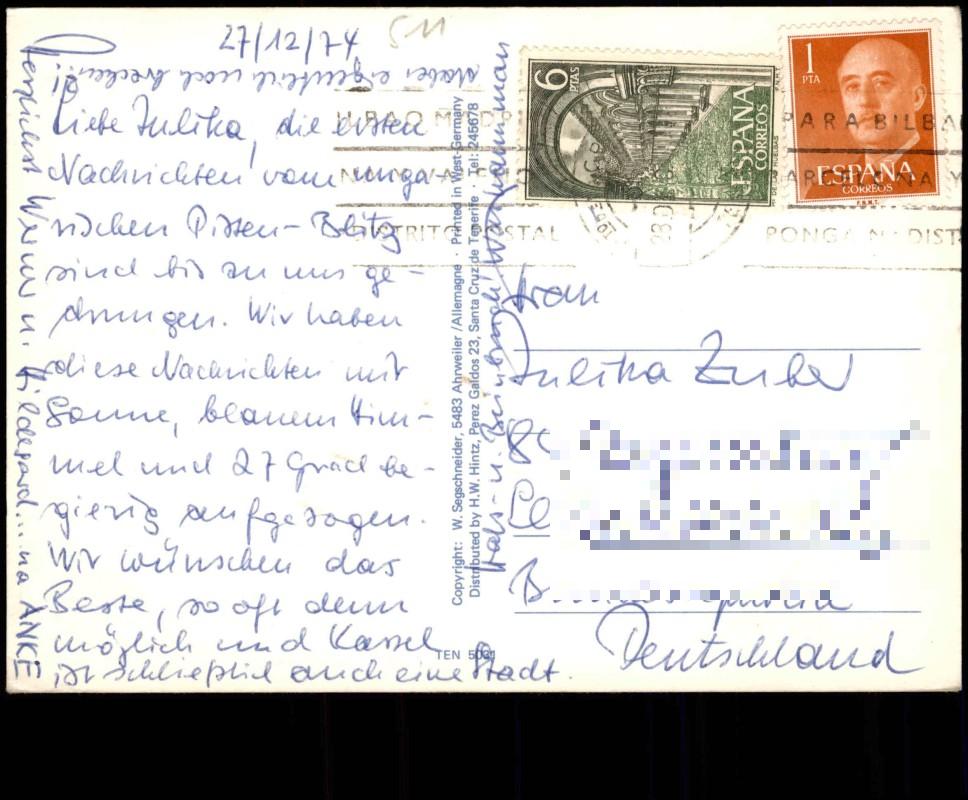 27/12/74
511
Liebe Julika, die ersten
Nachrichten vom unga-
rischen Pisten-Blitz
sind bis zu uns ge-
drungen. Wir haben
diese Nachrichten mit
Sonne, blauem Him-
mel und 27 Grad be-
gierig aufgesogen.
Wir wünschen das
Beste, so oft denn
möglich und Kassel
ist schließlich auch eine Stadt.
Herzlichst Werner u. Hildegard...na ANKE
Hals- u. Beinbruch
noch brechen
Frau
Julika
Deutschland
6 PTAS
ESPAÑA
CORREOS
1 PTA
ESPAÑA
CORREOS
F.N.M.T.
PARA BILBA
DISTRITO POSTAL
PONGA N. DIST
Copyright: W. Segschneider, 5483 Ahrweiler/Allemagne · Printed in West-Germany
Distributed by H.W. Hintz, Perez Galdos 23, Santa Cruz de Tenerife · Tel: 245678
TEN 5031